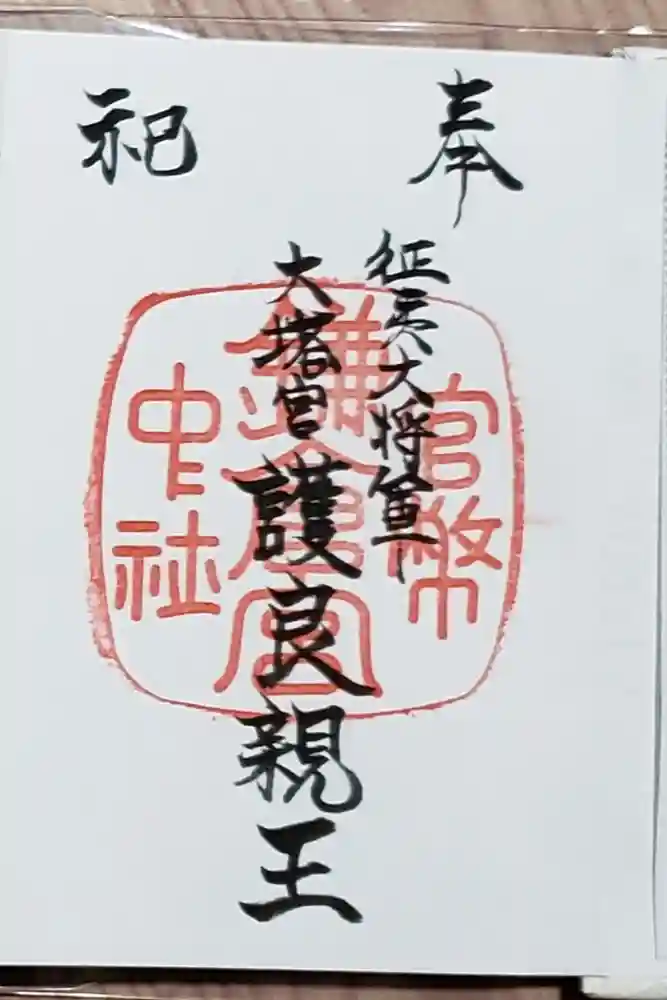 奉
征夷大将軍
大塔宮護良親王
祀
官幣
鎌倉宮
中社